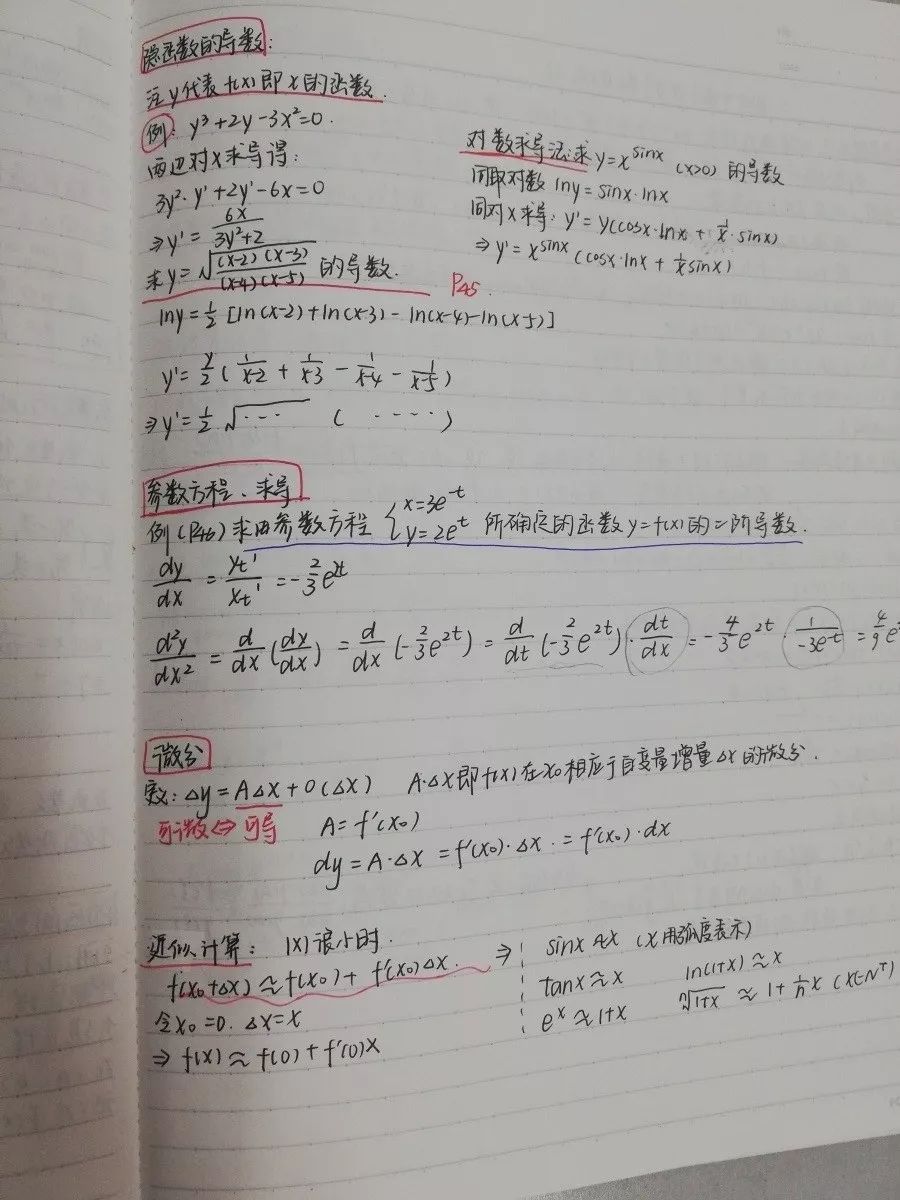 隐函数的导数:
注y代表f(x)即x的函数.
例: y³+2y-3x²=0.
两边对x求导得:
3y²·y'+2y'-6x=0
⇒y'=6x/(3y²+2)
求y=√((x-2)(x-3)/(x-4)(x-5)) 的导数. P45.
lny=½[ln(x-2)+ln(x-3)-ln(x-4)-ln(x-5)]
y'=y/2(1/(x-2)+1/(x-3)-1/(x-4)-1/(x-5))
⇒y'=½√··· (····)
对数求导法求y=x^sinx (x>0) 的导数
同取对数 lny=sinx·lnx
同对x求导: y'=y(cosx·lnx+1/x·sinx)
⇒y'=x^sinx (cosx·lnx+1/x sinx)
参数方程、求导
例(P46)求由参数方程{x=3e^-t y=2e^t 所确定的函数y=f(x)的二阶导数.
dy/dx=yt'/xt'=-2/3e^2t
d²y/dx²=d/dx(dy/dx)=d/dx(-2/3e^2t)=d/dt(-2/3e^2t)·dt/dx=-4/3e^2t·1/(-3e^-t)=4/9e
微分
: Δy=AΔx+o(Δx) A·Δx即f(x)在x0相应于自变量增量Δx的微分.
可微⇔可导 A=f'(x0)
dy=A·Δx=f'(x0)·Δx.=f'(x0)·dx
近似计算: |x|很小时.
f(x0+Δx)≈f(x0)+f'(x0)Δx.
令x0=0. Δx=x
⇒f(x)≈f(0)+f'(0)x
⇒ sinx≈x (x用弧度表示)
tanx≈x ln(1+x)≈x
e^x≈1+x ⁿ√(1+x)≈1+1/n x (x∈N⁺)